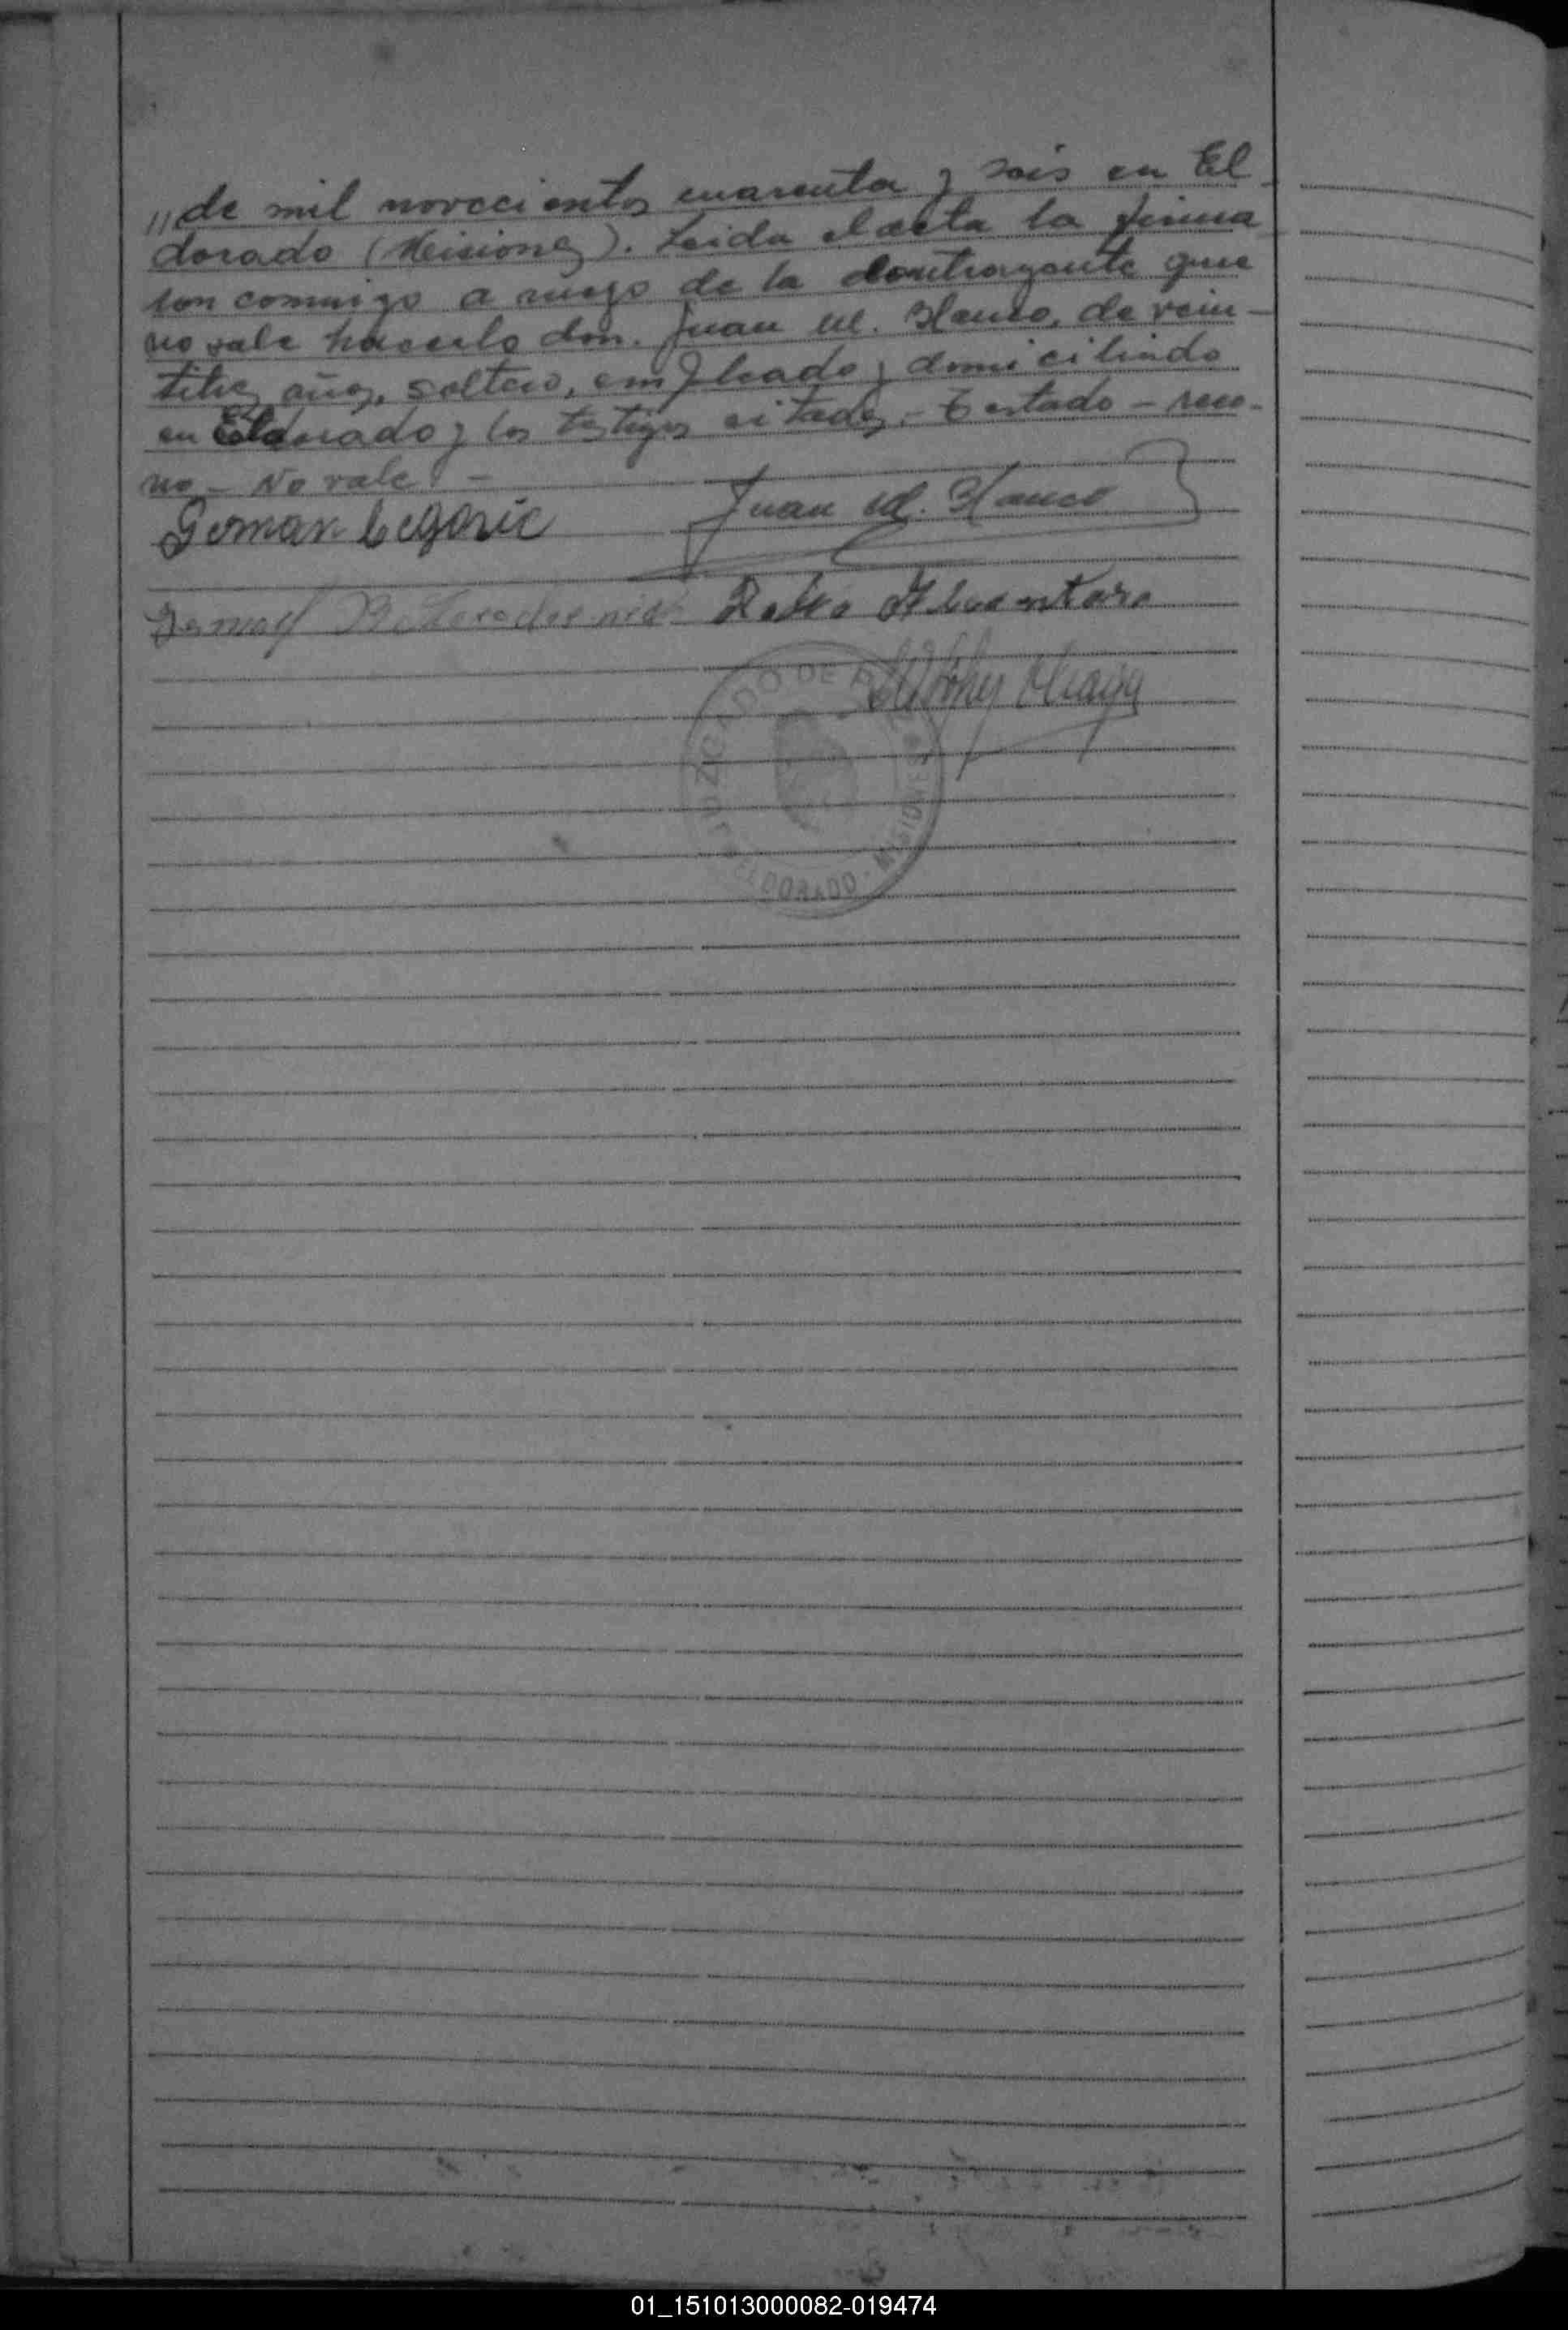 // de mil novecientos cuarenta y seis en El-
dorado (Misiones). Leida el acta la firma-
ron conmigo a ruego de la contrayente que
no sabe hacerlo don. Juan M. Blanco, de vein-
titres años, soltero, empleado y domiciliado
en Eldorado y los testigos citados. - Testado - reco-
no - No vale. -
Juan M. Blanco
German
Pedro
JUZGADO DE PAZ
ELDORADO - MISIONES
01_151013000082-019474